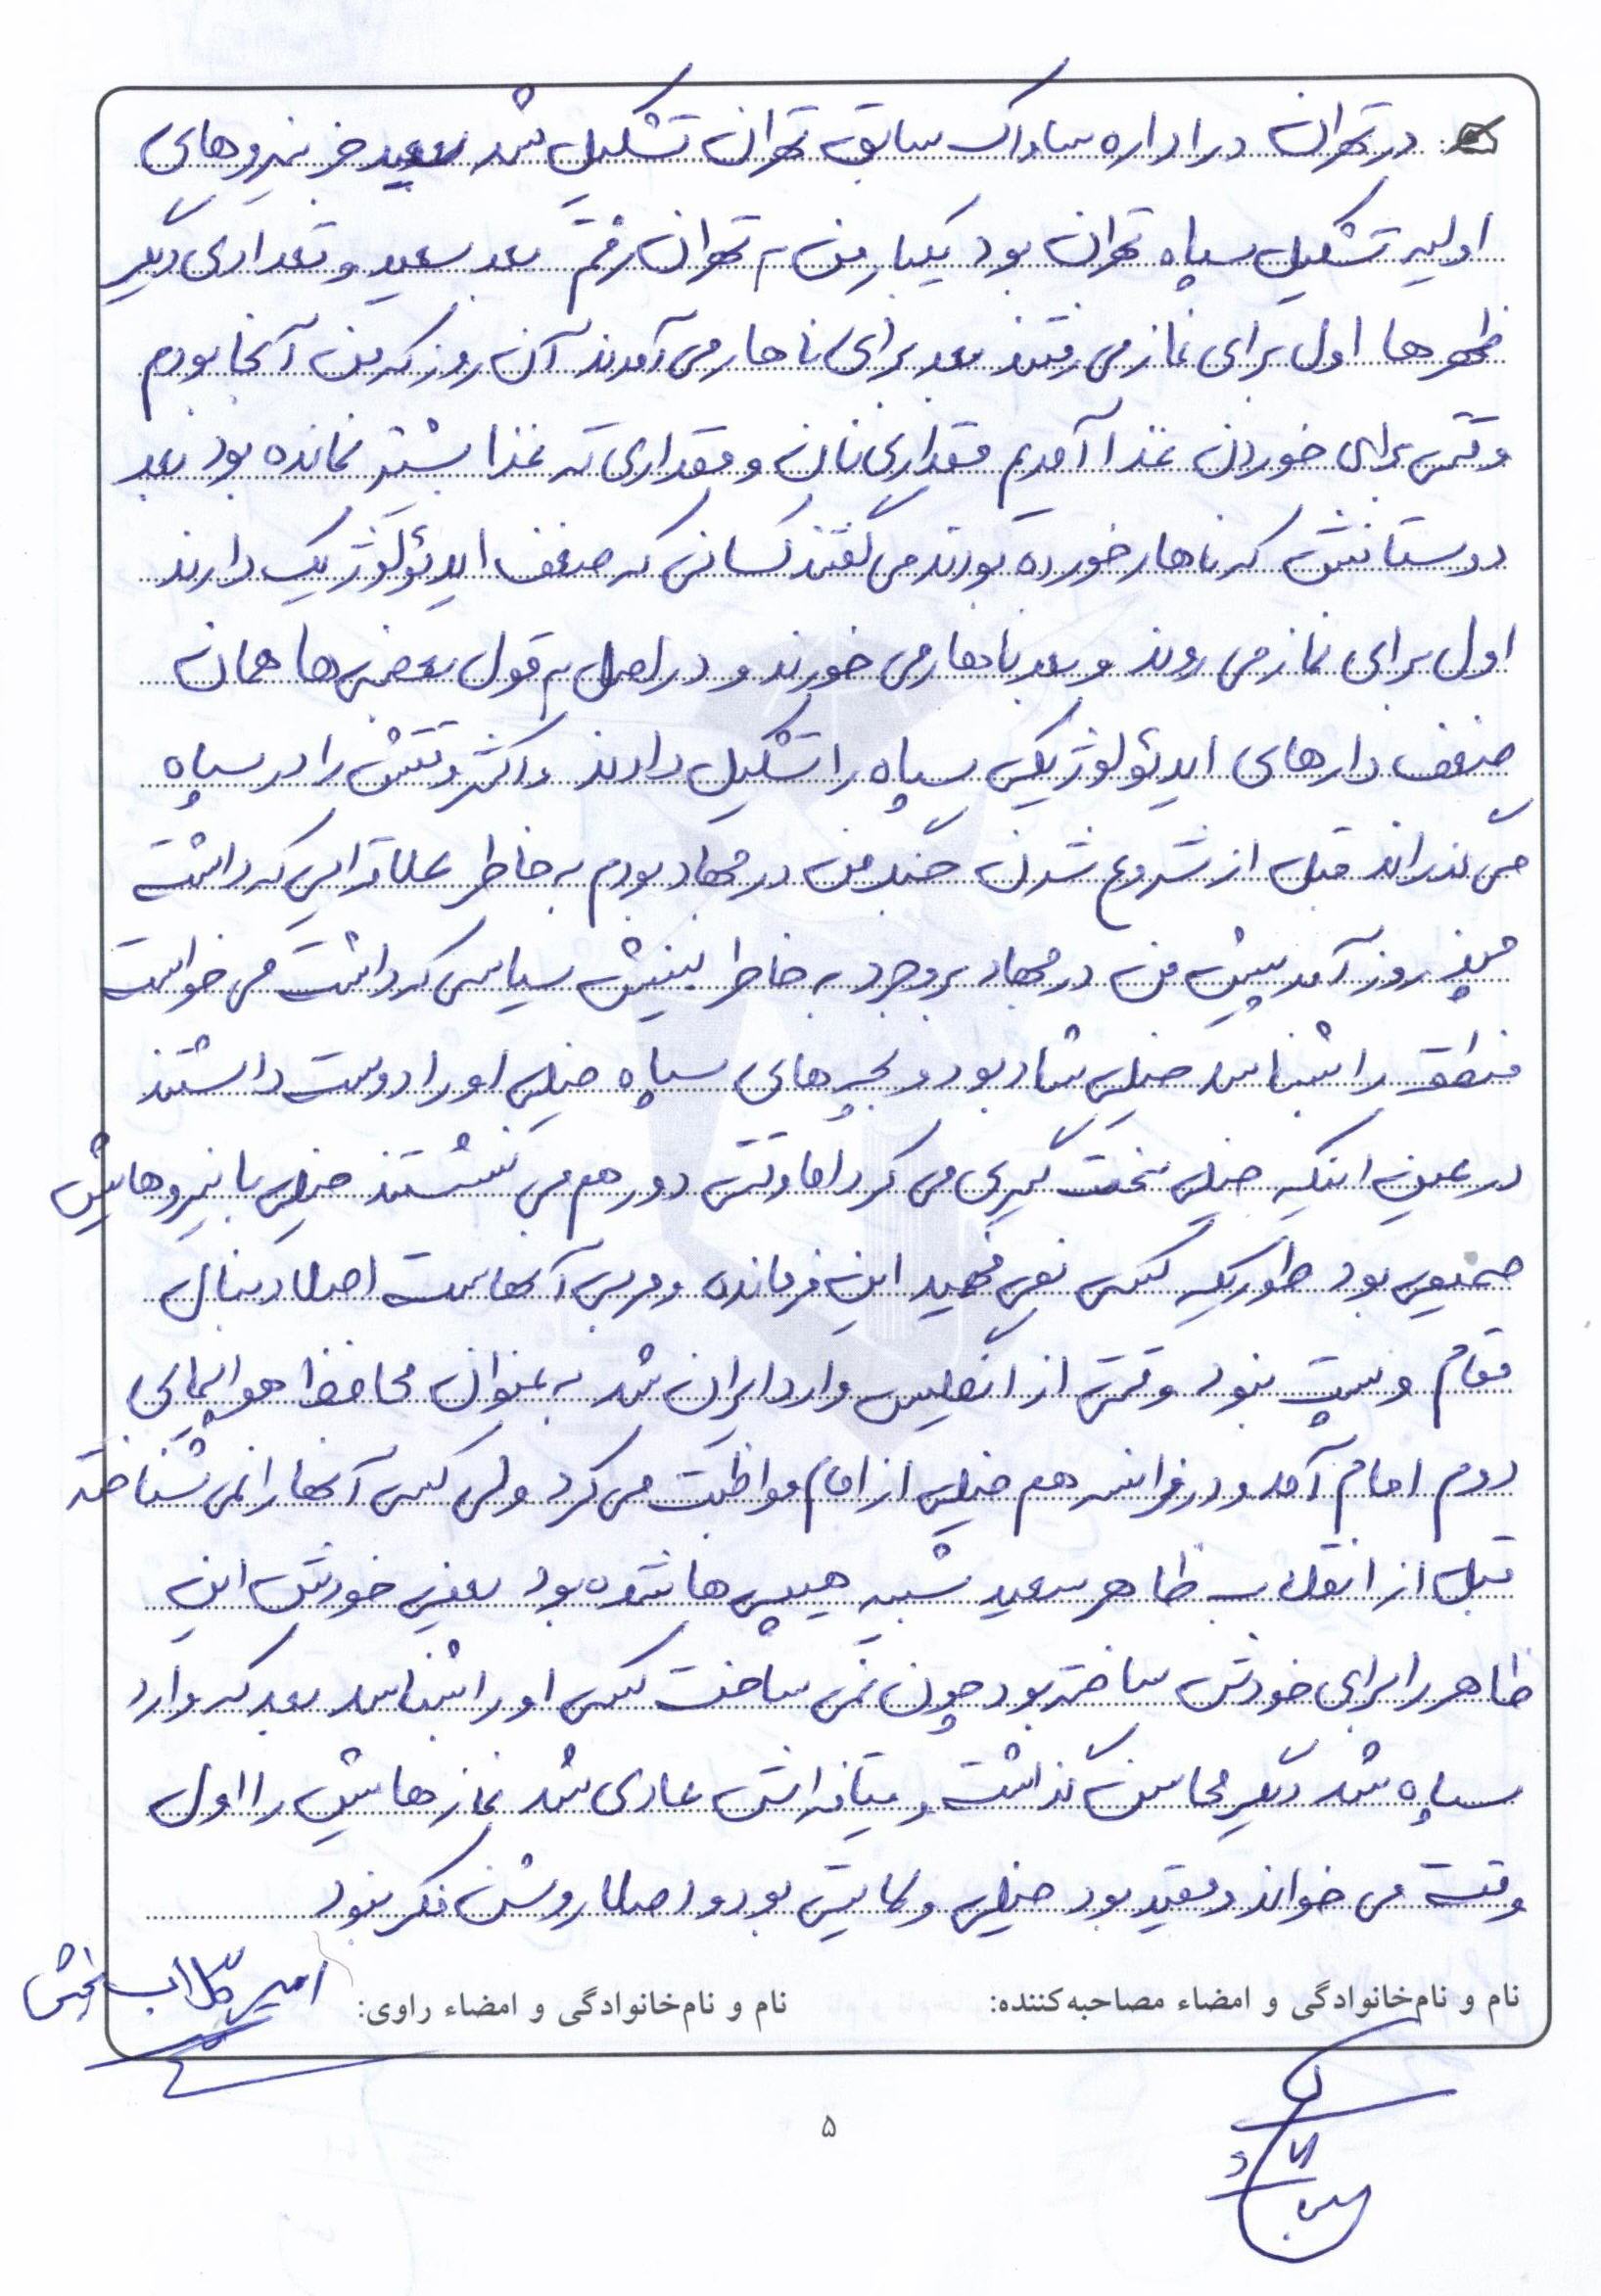 در تهران در اداره ساواک سابق تهران تشکیل شد سعید جزء نیروهای
اولیه تشکیل سپاه تهران بود یکبار من به تهران رفتم بعد سعید و تعدادی دیگر
ظهرها اول برای نماز می رفتند بعد برای ناهار می آمدند آن روز که من آنجا بودم
وقتی برای خوردن غذا آمدیم مقداری نان و مقداری ته غذا بیشتر نمانده بود بعد
دوستانش که ناهار خورده بودند می گفتند کسانی که ضعف ایدئولوژیک دارند
اول برای نماز می روند و بعد ناهار می خورند و در اصل به قول بعضی ها همان
ضعف دارهای ایدئولوژیکی سپاه را تشکیل دادند و اکثر وقتش را در سپاه
می گذراند قبل از شروع شدن جنگ من در جهاد بودم به خاطر علاقه ایی که داشت
چند روز آمد پیش من در جهاد بروجرد به خاطر بینش سیاسی که داشت می خواست
منطقه را بشناسد خیلی شاد بود و بچه های سپاه خیلی او را دوست داشتند
در عین اینکه خیلی سخت گیری می کرد اما وقتی دور هم می نشستند خیلی با نیروهایش
صمیمی بود طوریکه کسی نمی فهمید این فرمانده و مربی آنهاست اصلا دنبال
مقام و پست نبود وقتی از انگلیس وارد ایران شد به عنوان محافظ هواپیمایی
دوم امام آمد و در فرانسه هم خیلی از امام مواظبت می کرد ولی کسی آنها را نمی شناخت
قبل از انقلاب ظاهر سعید شبیه هیپی ها شده بود یعنی خودش این
ظاهر را برای خودش ساخته بود چون نمی ساخت کسی او را بشناسد بعد که وارد
سپاه شد دیگر محاسن گذاشت و قیافه اش عادی شد نمازهایش را اول
وقت می خواند و مقید بود خیلی ولایتی بود و اصلا روشن فکر نبود
نام و نام‌خانوادگی و امضاء مصاحبه‌کننده: نام و نام‌خانوادگی و امضاء راوی: امیر گلاب بخش
۵